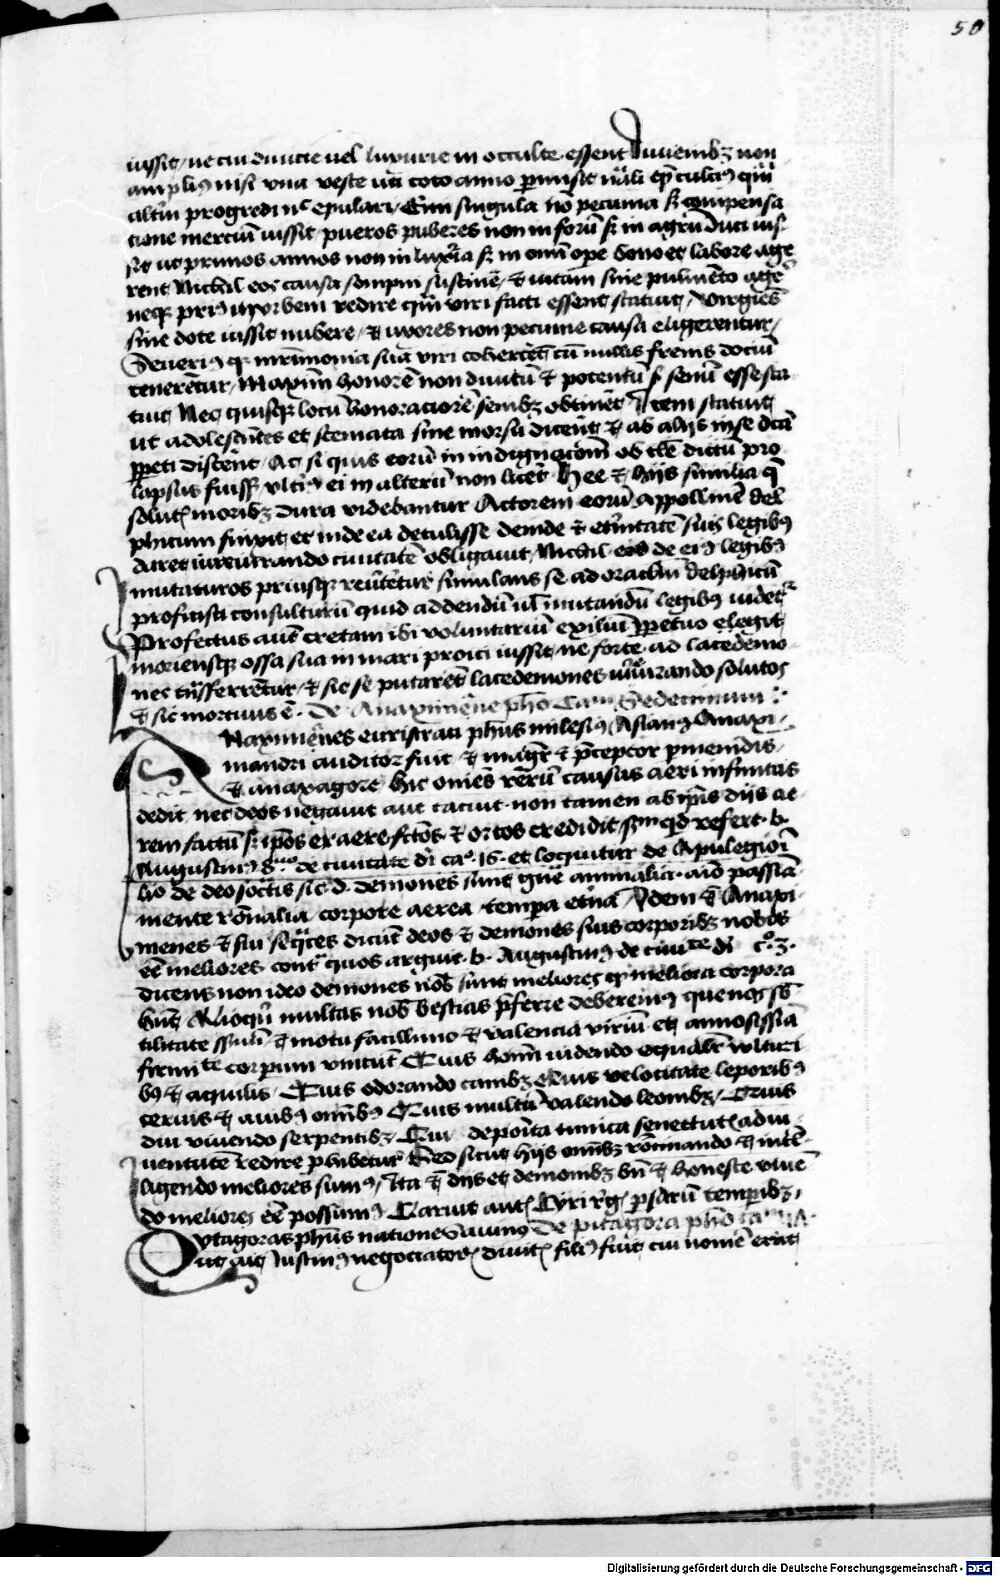 50
iussit / ne cui diuicie uel luxurie in occulto essent Iuuenibꝫ non
ampliꝰ nisi vna veste uti toto anno permisit
altiꝰ progredi nec epulari / Emi singula nō pecunia sꝫ compensa
tione mercium iussit / pueros puberes non in forū sꝫ in agrū duci ius
sit ut primos annos non in luxuria sꝫ in omī opere bono et labore age
rent Nichil eos causa sompni sustinere et uitam sine pulmēto agere
neqꝫ priꝰ in vrbem redire qꝫ viri facti essent statuit / virgines
sine dote iussit nubere / et uxores non pecunie causa eligerentur /
Seueriꝰ qꝫ matrimonia sua viri cohercerent cū nullis frenis dotium
tenerentur / Maximū honorē non diuitū et potentū sꝫ senū esse sta
tuit Nec quisqꝫ locū honoratiorē senibꝫ obtinet Item statuit
ut adolescentes et stemata sine morsu dicerent et ab alijs in se dicta
perpeti discerent / Ac si quis eorū in indignacionem ob tale dictū pro
lapsus fuisset vltra ei in alterū non liceret Hec et hijs similia quia
solutis moribꝫ dura videbantur Actorem eorū Appollinē del
phicum finxit et inde ea detulisse deinde et eternitatē suis legibꝰ
daret iureiurando ciuitatē obligauit Nichil eos de eiꝰ legibꝰ
mutaturos priusqꝫ reuerteretur simulans se ad oraclum delphicū
proficisci consulturū quid addendū ul mutandū legibꝰ uideretur
Profectus autē cretam ibi voluntariū exiliū perpetuo elegit
moriensqꝫ ossa sua in mari proici iussit / ne forte ad lacedemo
nes transferrentur / et sic se putarent lacedemones iureiurando solutos
et sic mortuus ē . De Anaximene pho Cam Sedecimum
Naximenes euristrati phus milesiꝰ / Asianꝰ Anaxi
mandri auditor fuit et magister et preceptor pmenidis /
et anaxagore / hic omnes rerū causas aeri infinitas
dedit nec deos negauit aut tacuit non tamen ab ipsis dijs ae
rem factū sꝫ ipsos ex aere factos et ortos credidit / scdm qd refert b.
Augustinꝰ 8uo de ciuitate di ca° 16 . et loquitur de Apulegio
lio de deo socratis sic d. demones sunt genere animalia aio passiua
mente rōnalia / corpore aerea tempe eterna Idem et Anaxi
menes et sui sequaces dicunt deos et demones suis corporibꝫ nobis
eē meliores contra quos arguit b. Augustinꝰ de ciuitate di c° 3.
dicens non ideo demones nobis sunt meliores qꝫ meliora corpora
habent Alioquin multas nobis bestias preferre deberemꝰ que nos sub
tilitate sensuum et motu facillimo et valencia virium et annosissima
firmitate corporum vincunt Quis hominum uidendo equabitur vulturi
bꝰ et aquilis / Quis odorando canibꝫ Quis velocitate leporibꝰ
ceruis et auibꝰ omibꝰ Quis multū valendo leonibꝫ / Quis
diu viuendo serpentibꝫ Qui deposita tunica senectutis ad iu
uentutē redire perhibetur Sed sicut hijs omibꝫ rōcinando et intelli
gendo meliores sumꝰ / Ita et dijs et demonibꝫ bn et honeste viuen
do meliores eē possumꝰ Claruit autē Cyri regis persarū temporibꝫ /
Pytagoras phus natione samiꝰ De pitagora pho ca
ut ait Iustinꝰ negociatoris diuitis filiꝰ fuit cui nomē erat
Digitalisierung gefördert durch die Deutsche Forschungsgemeinschaft - DFG